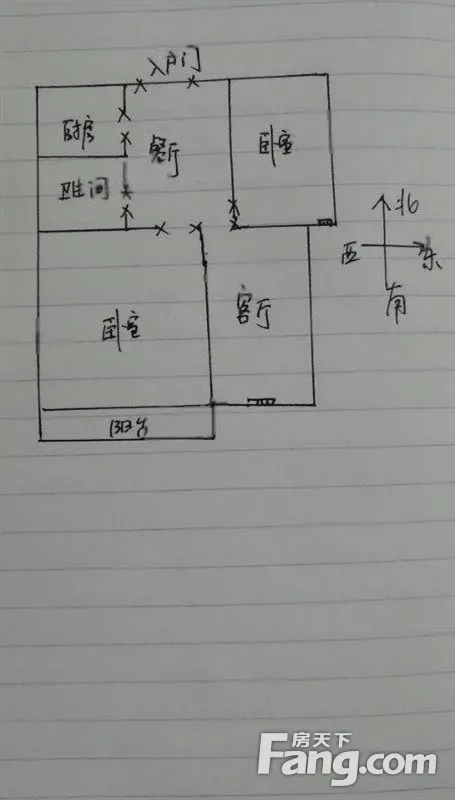 入户门
厨房
餐厅
卧室
卫生间
北
西
东
南
客厅
卧室
阳台
房天下
Fang.com